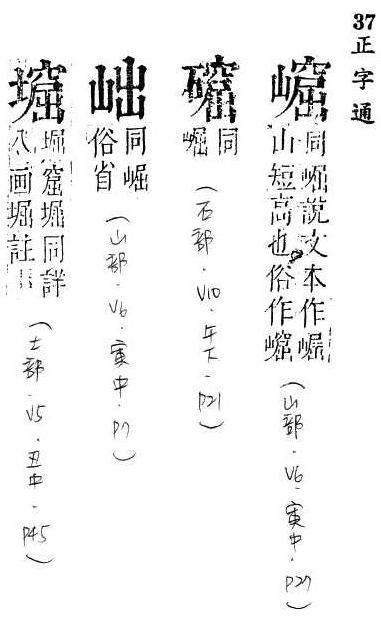 37正字通
同崛說文本作崛
山短高也俗作
(山部.V6.寅中.P27)
同
崛
(石部.V10.午下.P21)
同崛
俗省
(山部.V6.寅中.P7)
堀窟堀同詳
八画堀註
(土部.V5.丑中.P45)